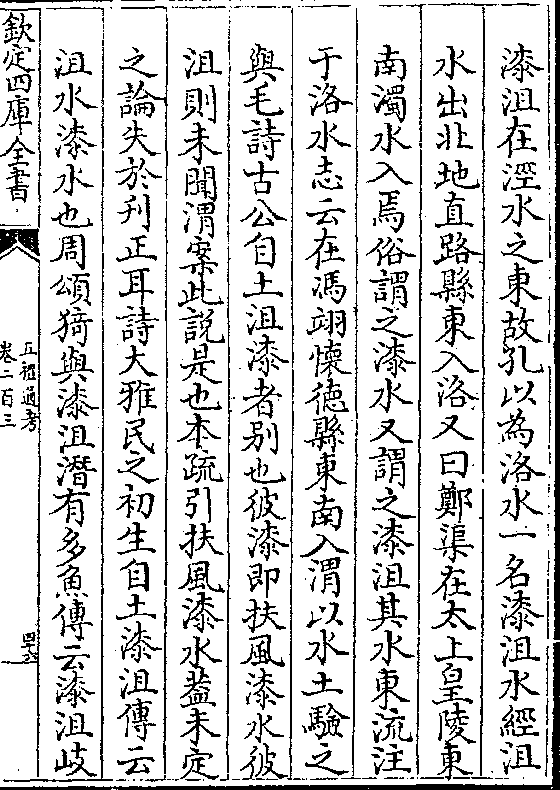 漆沮在涇水之東故孔以為洛水一名漆沮水經沮
水出北地直路縣東入洛又曰鄭渠在太上皇陵東
南濁水入焉俗謂之漆水又謂之漆沮其水東流注
于洛水志云在馮翊懷德縣東南入渭以水土驗之
與毛詩古公自土沮漆者别也彼漆即扶風漆水彼
沮則未聞渭案此説是也本疏引扶風漆水葢未定
之論失於刋正耳詩大雅民之初生自土漆沮傳云
沮水漆水也周頌猗與漆沮潛有多魚傳云漆沮岐
欽定四庫全書
五禮通考
卷二百三